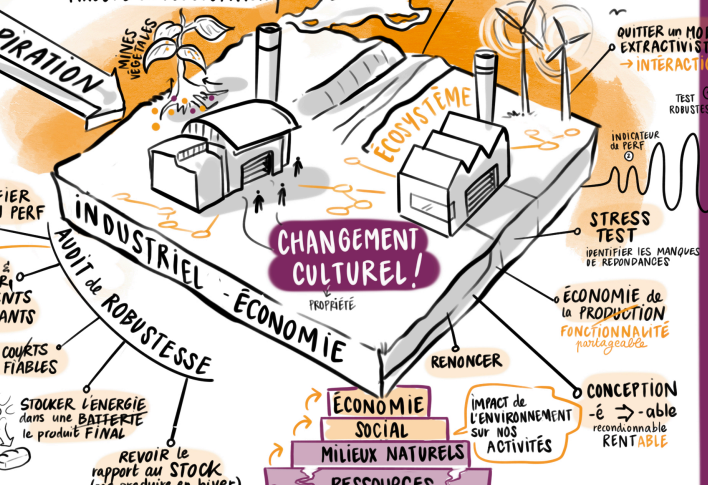 MINES
VÉGÉTALES
PIRATION
ÉCOSYSTÈME
QUITTER un MO
EXTRACTIVIST
→ INTERACTIO
TEST
ROBUSTES
INDICATEUR
de PERF
②
STRESS
TEST
IDENTIFIER LES MANQUES
DE REDONDANCES
ÉCONOMIE de
la PRODUCTION
FONCTIONNALITÉ
partageable
CONCEPTION
-é ⇒ -able
reconditionnable
RENTABLE
CHANGEMENT
CULTUREL!
PROPRIÉTÉ
INDUSTRIEL - ÉCONOMIE
AUDIT de ROBUSTESSE
FIER
PERF
NTS
ANTS
COURTS
FIABLES
STOCKER L'ENERGIE
dans une BATTERIE
le produit FINAL
REVOIR le
rapport au STOCK
produire en hiver)
RENONCER
ÉCONOMIE
SOCIAL
MILIEUX NATURELS
RESSOURCES
IMPACT de
L'ENVIRONNEMENT
SUR NOS
ACTIVITÉS